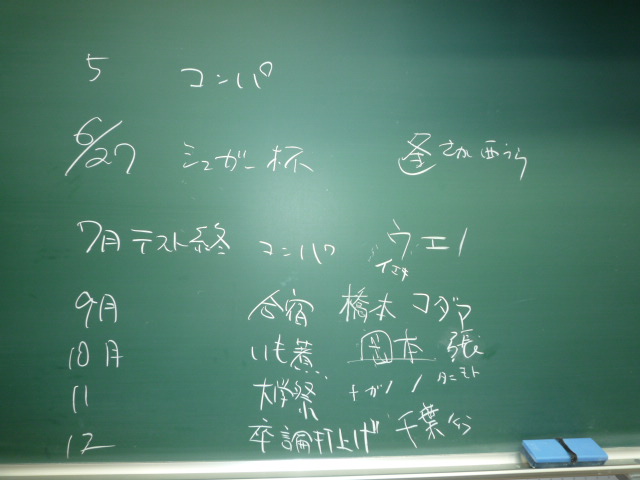 5 コンパ
6/27 シュガー杯
7月テスト終 コンパ ウエノ
9月 合宿 橋本 コダマ
10月 いも煮 岡本 張
11 大学祭 ナガノ タニモト
12 卒論打上げ 千葉